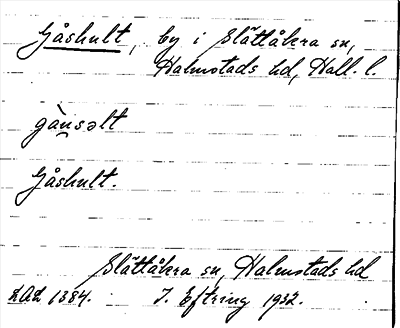 Gåshult, by i Slättåkra sn,
Halmstads hd, Hall. l.
gàu̯səlt
Gåshult.
Slättåkra sn, Halmstads hd
LAL 1384. J. Eftring 1932.